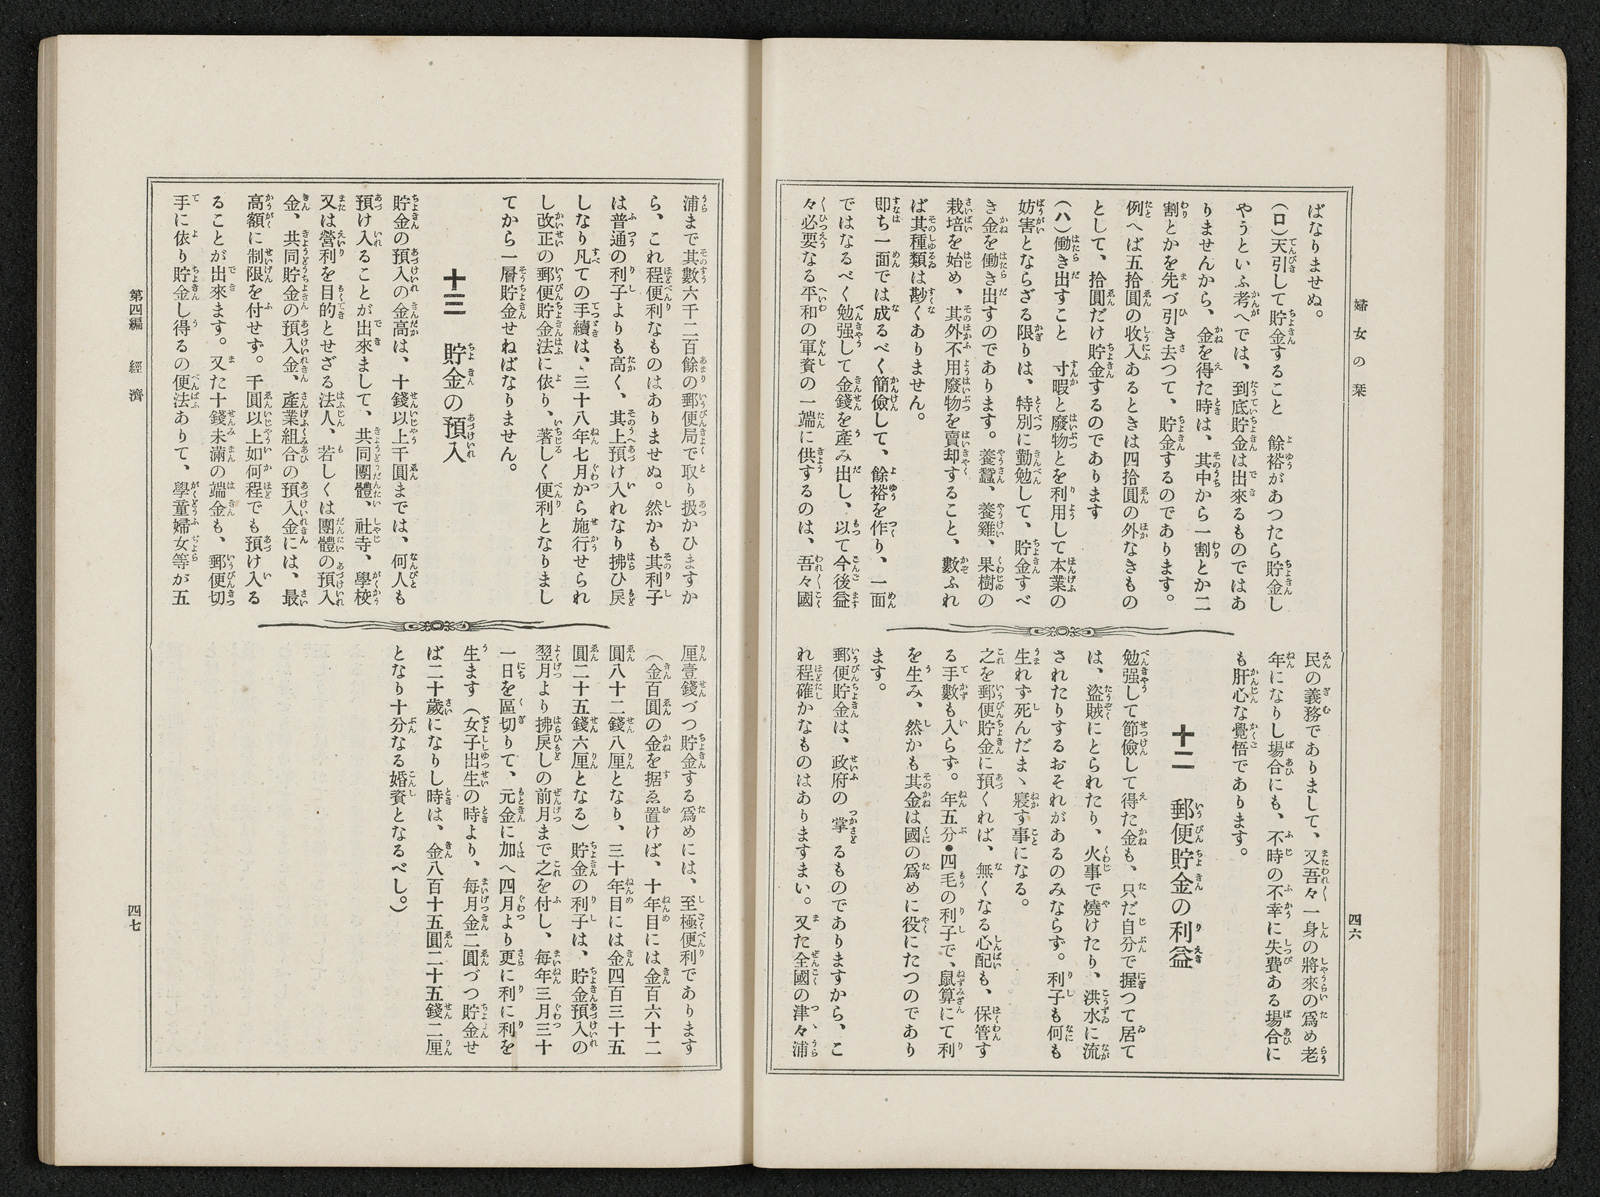 婦女の栞
四六
ばなりませぬ。
（ロ）天引して貯金すること　餘裕があつたら貯金し
やうといふ考へでは、到底貯金は出來るものではあ
りませんから、金を得た時は、其中から一割とか二
割とかを先づ引き去つて、貯金するのであります。
例へば五拾圓の收入あるときは四拾圓の外なきもの
として、拾圓だけ貯金するのであります
（ハ）働き出すこと　寸暇と廢物とを利用して本業の
妨害とならざる限りは、特別に勤勉して、貯金すべ
き金を働き出すのであります。養蠶、養雞、果樹の
栽培を始め、其外不用廢物を賣却すること、數ふれ
ば其種類は尠くありません。
即ち一面では成るべく簡儉して、餘裕を作り、一面
ではなるべく勉强して金錢を產み出し、以て今後益
々必要なる平和の軍資の一端に供するのは、吾々國
民の義務でありまして、又吾々一身の將來の爲め老
年になりし場合にも、不時の不幸に失費ある場合に
も肝心な覺悟であります。
十二　郵便貯金の利益
勉强して節儉して得た金も、只だ自分で握つて居て
は、盜賊にとられたり、火事で燒けたり、洪水に流
されたりするおそれがあるのみならず。利子も何も
生れず死んだまゝ寢す事になる。
之を郵便貯金に預くれば、無くなる心配も、保管す
る手數も入らず。年五分●四毛の利子で、鼠算にて利
を生み、然かも其金は國の爲めに役にたつのであり
ます。
郵便貯金は、政府の掌るものでありますから、こ
れ程確かなものはありますまい。又た全國の津々浦
浦まで其數六千二百餘の郵便局で取り扱かひますか
ら、これ程便利なものはありませぬ。然かも其利子
は普通の利子よりも高く、其上預け入れなり拂ひ戾
しなり凡ての手續は、三十八年七月から施行せられ
し改正の郵便貯金法に依り、著しく便利となりまし
てから一層貯金せねばなりません。
十三　貯金の預入
貯金の預入の金高は、十錢以上千圓までは、何人も
預け入ることが出來まして、共同團體、社寺、學校
又は營利を目的とせざる法人、若しくは團體の預入
金、共同貯金の預入金、產業組合の預入金には、最
高額に制限を付せず。千圓以上如何程でも預け入る
ることが出來ます。又た十錢未滿の端金も、郵便切
手に依り貯金し得るの便法ありて、學童婦女等が五
厘壹錢づつ貯金する爲めには、至極便利であります
（金百圓の金を据ゑ置けば、十年目には金百六十二
圓八十二錢八厘となり、三十年目には金四百三十五
圓二十五錢六厘となる）貯金の利子は、貯金預入の
翌月より拂戾しの前月まで之を付し、每年三月三十
一日を區切りて、元金に加へ四月より更に利に利を
生ます（女子出生の時より、每月金二圓づつ貯金せ
ば二十歲になりし時は、金八百十五圓二十五錢二厘
となり十分なる婚資となるべし。）
第四編　經濟
四七